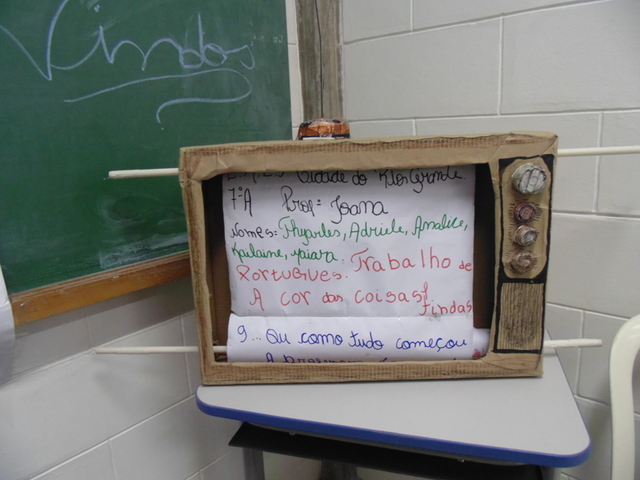 Vindos
Cidade do Rio Grande
7ªA Profª Joana
Nomes= Thyarles, Adriele, Analice,
Kailaine,
Português. Trabalho de
A cor das coisas findas
9... Ou como tudo começou
A